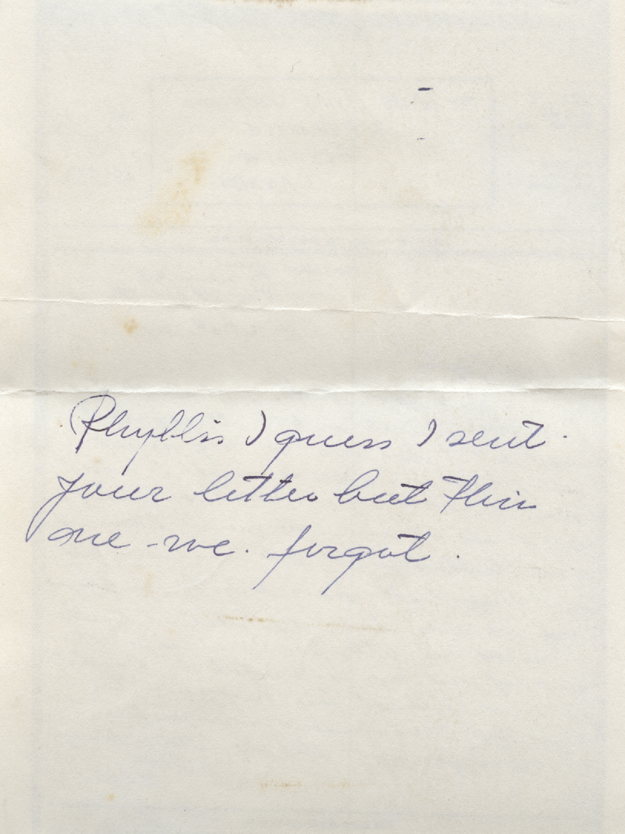 Phyllis I guess I sent
your letter but this
one - we. forgot.